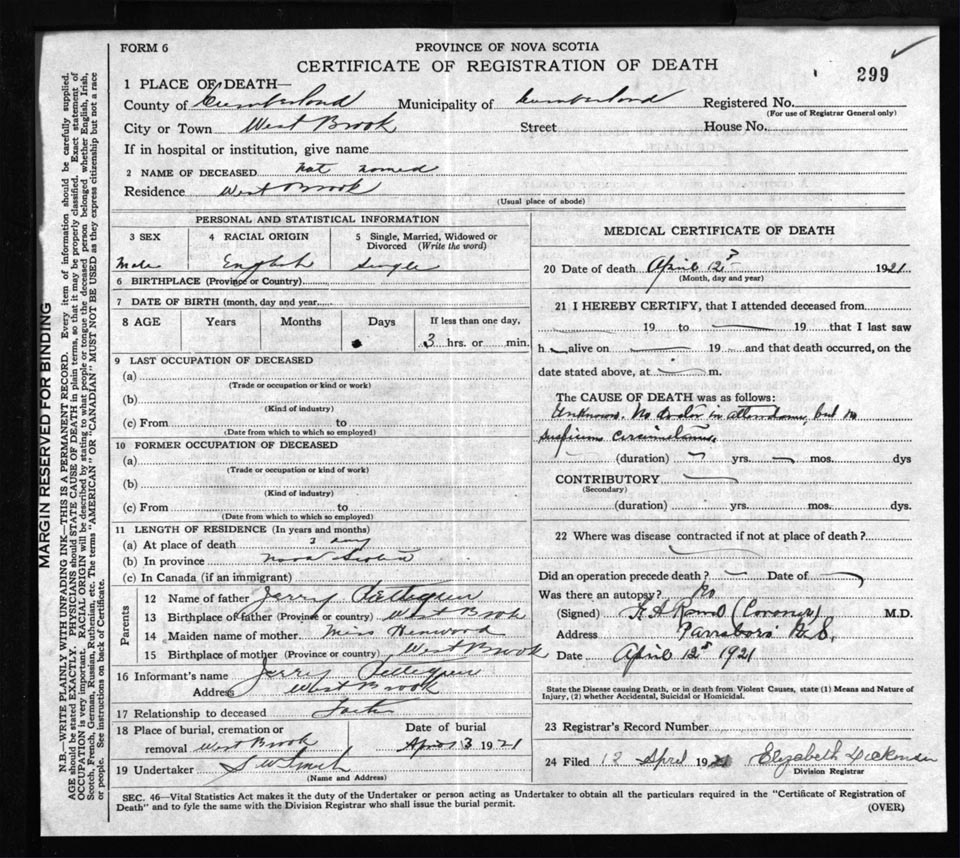 FORM 6
PROVINCE OF NOVA SCOTIA
CERTIFICATE OF REGISTRATION OF DEATH
299
1 PLACE OF DEATH—
County of Cumberland Municipality of Cumberland Registered No.
(For use of Registrar General only)
City or Town West Brook Street House No.
If in hospital or institution, give name
2 NAME OF DECEASED not named
Residence West Brook
(Usual place of abode)
PERSONAL AND STATISTICAL INFORMATION
3 SEX 4 RACIAL ORIGIN 5 Single, Married, Widowed or
Divorced (Write the word)
Male English Single
6 BIRTHPLACE (Province or Country)
7 DATE OF BIRTH (month, day and year
8 AGE Years Months Days If less than one day,
3 hrs. or min.
9 LAST OCCUPATION OF DECEASED
(a)
(Trade or occupation or kind or work)
(b)
(Kind of industry)
(c) From to
(Date from which to which so employed)
10 FORMER OCCUPATION OF DECEASED
(a)
(Trade or occupation or kind of work)
(b)
(Kind of industry)
(c) From to
(Date from which to which so employed)
11 LENGTH OF RESIDENCE (In years and months)
(a) At place of death 3 day
(b) In province Nova Scotia
(c) In Canada (if an immigrant)
Parents
12 Name of father Jerry
13 Birthplace of father (Province or country) West Brook
14 Maiden name of mother Miss Henwood
15 Birthplace of mother (Province or country) West Brook
16 Informant's name Jerry
Address West Brook
17 Relationship to deceased
18 Place of burial, cremation or
removal West Brook
Date of burial
April 3 1921
19 Undertaker S W Smith
(Name and Address)
MEDICAL CERTIFICATE OF DEATH
20 Date of death April 1921
(Month, day and year)
21 I HEREBY CERTIFY, that I attended deceased from
19 to 19 that I last saw
h alive on 19 and that death occurred, on the
date stated above, at m.
The CAUSE OF DEATH was as follows:
Unknown. No doctor in attendance, but no
suspicious circumstances.
(duration) yrs. mos. dys
CONTRIBUTORY
(Secondary)
(duration) yrs. mos. dys.
22 Where was disease contracted if not at place of death?
Did an operation precede death? Date of
Was there an autopsy? No
(Signed) (Coroner) M.D.
Address Parrsboro N.S.
Date April 12 1921
State the Disease causing Death, or in death from Violent Causes, state (1) Means and Nature of
Injury, (2) whether Accidental, Suicidal or Homicidal.
23 Registrar's Record Number
24 Filed 12 April 19 Elizabeth Dickman
Division Registrar
SEC. 46—Vital Statistics Act makes it the duty of the Undertaker or person acting as Undertaker to obtain all the particulars required in the "Certificate of Registration of
Death" and to fyle the same with the Division Registrar who shall issue the burial permit.
(OVER)
MARGIN RESERVED FOR BINDING
N.B.—WRITE PLAINLY WITH UNFADING INK—THIS IS A PERMANENT RECORD. Every item of information should be carefully supplied.
AGE should be stated EXACTLY. PHYSICIANS should STATE CAUSE OF DEATH in plain terms, so that it may be properly classified. Exact statement of
OCCUPATION is very important. RACIAL ORIGIN will be described by stating to what people or tongue the deceased person belonged whether English, Irish,
Scotch, French, German, Russian, Ruthenian, etc. The terms "AMERICAN" OR "CANADIAN" MUST NOT BE USED as they express citizenship but not a race
or people. See instructions on back of Certificate.